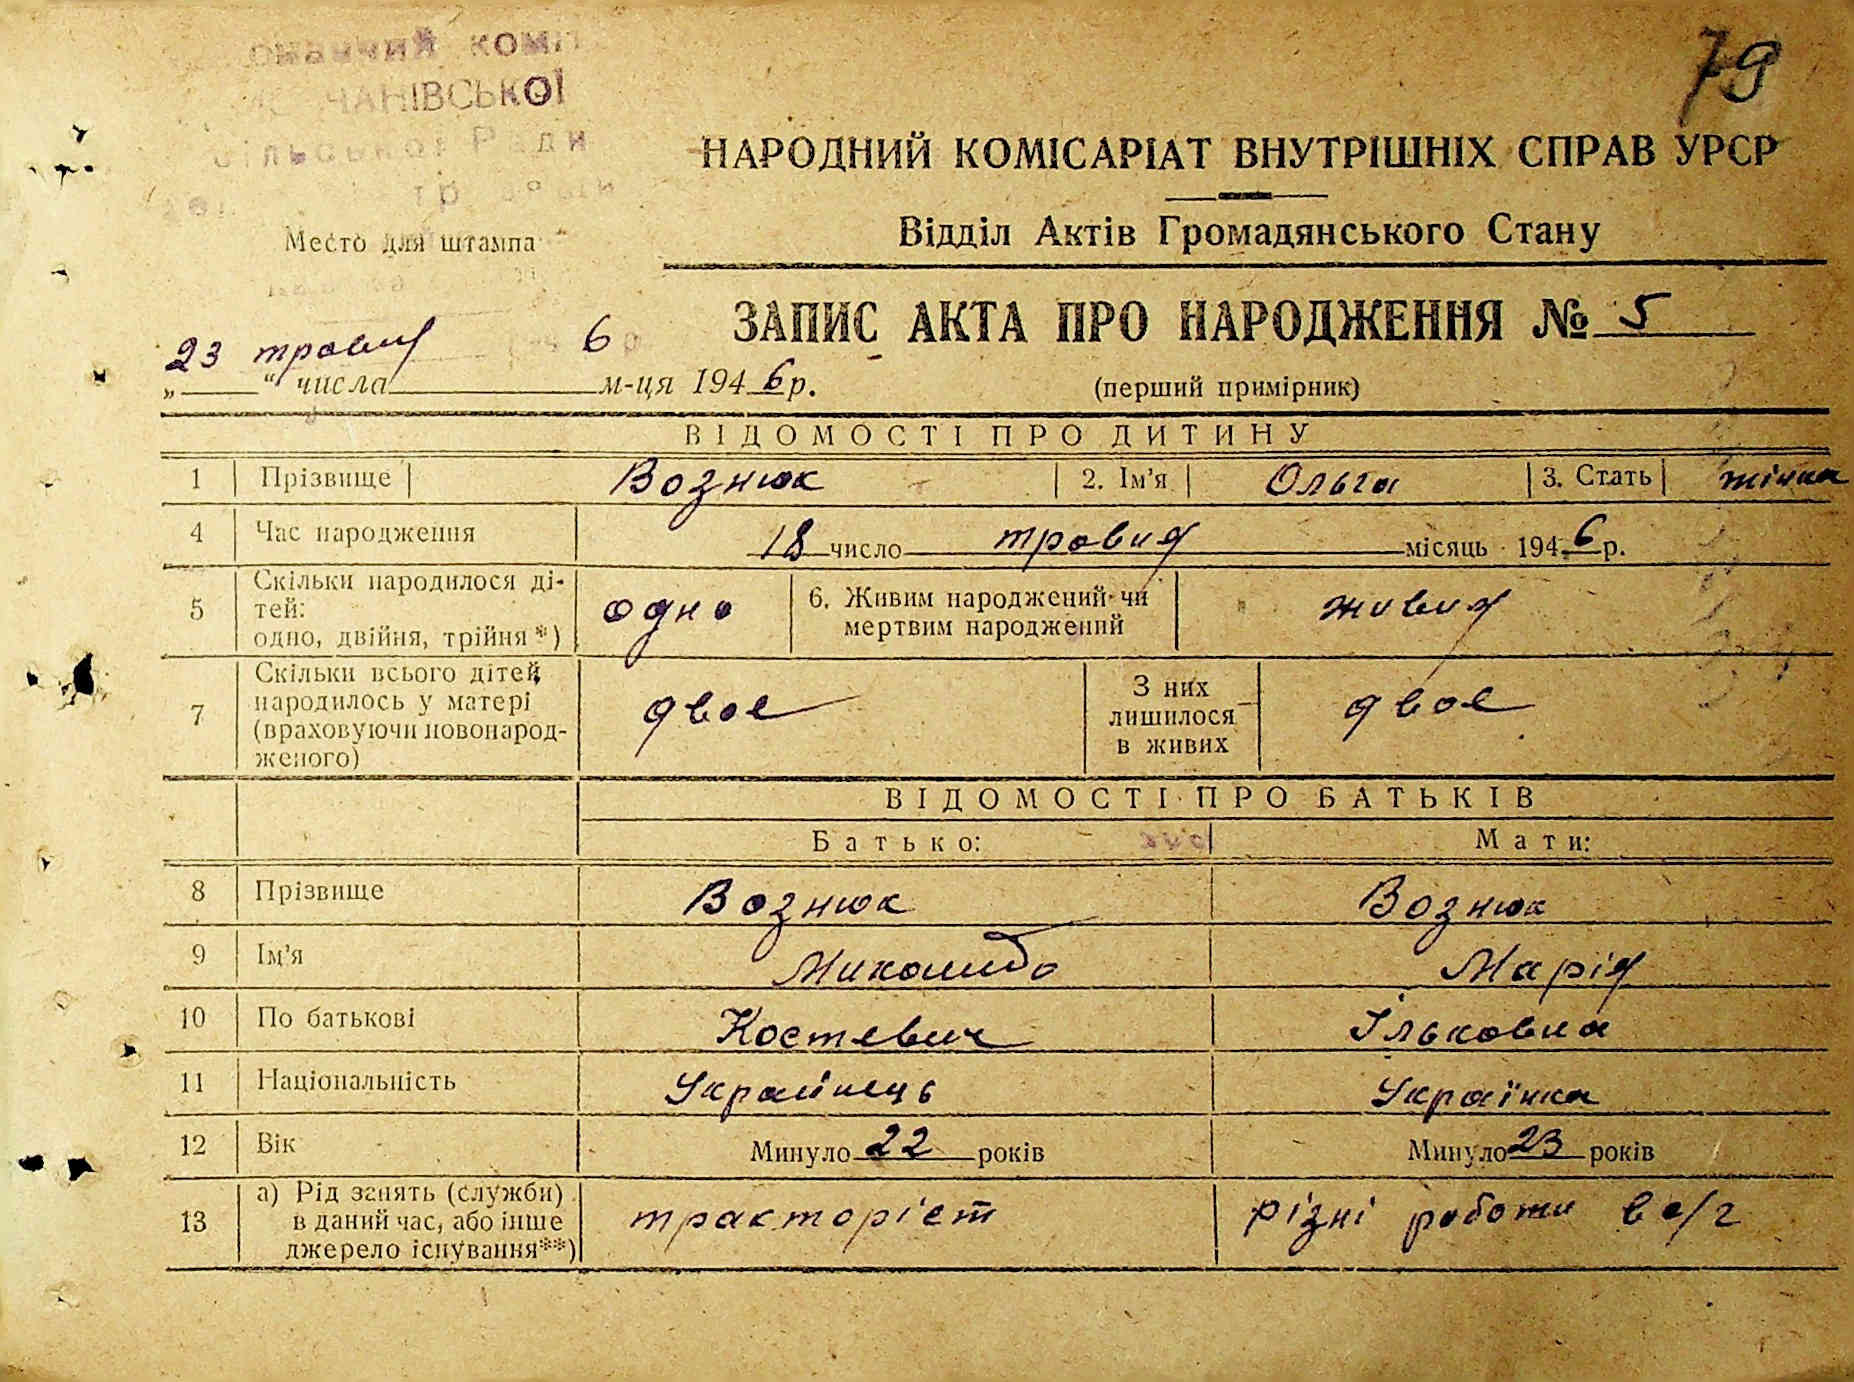 79
ЧАНІВСЬКОЇ
Ради
НАРОДНИЙ КОМІСАРІАТ ВНУТРІШНІХ СПРАВ УРСР
Відділ Актів Громадянського Стану
Место для штампа
ЗАПИС АКТА ПРО НАРОДЖЕННЯ № 5
23 травня 6
„ “ числа м-ця 1946 р.
(перший примірник)
ВІДОМОСТІ ПРО ДИТИНУ
1 Прізвище Вознюк 2. Ім'я Ольга 3. Стать жінка
4 Час народження 18 число травня місяць 1946 р.
5 Скільки народилося ді-
тей:
одно, двійня, трійня*) одно 6. Живим народжений чи
мертвим народжений живия
7 Скільки всього дітей
народилось у матері
(враховуючи новонарод-
женого) двое З них
лишилося
в живих двое
ВІДОМОСТІ ПРО БАТЬКІВ
Батько: Мати:
8 Прізвище Вознюк Вознюк
9 Ім'я Марія
10 По батькові Костевич Ільковна
11 Національність Українець Українка
12 Вік Минуло 22 років Минуло 23 років
13 а) Рід занять (служби)
в даний час, або інше
джерело існування**) тракторіст різні роботи в с/г